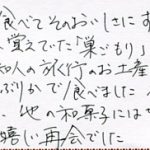 食べてそのおいしさにす
覚えていた「巣ごもり」
知人の旅行のお土産
ぶりかで食べました
、他の和菓子には
嬉しい再会でした